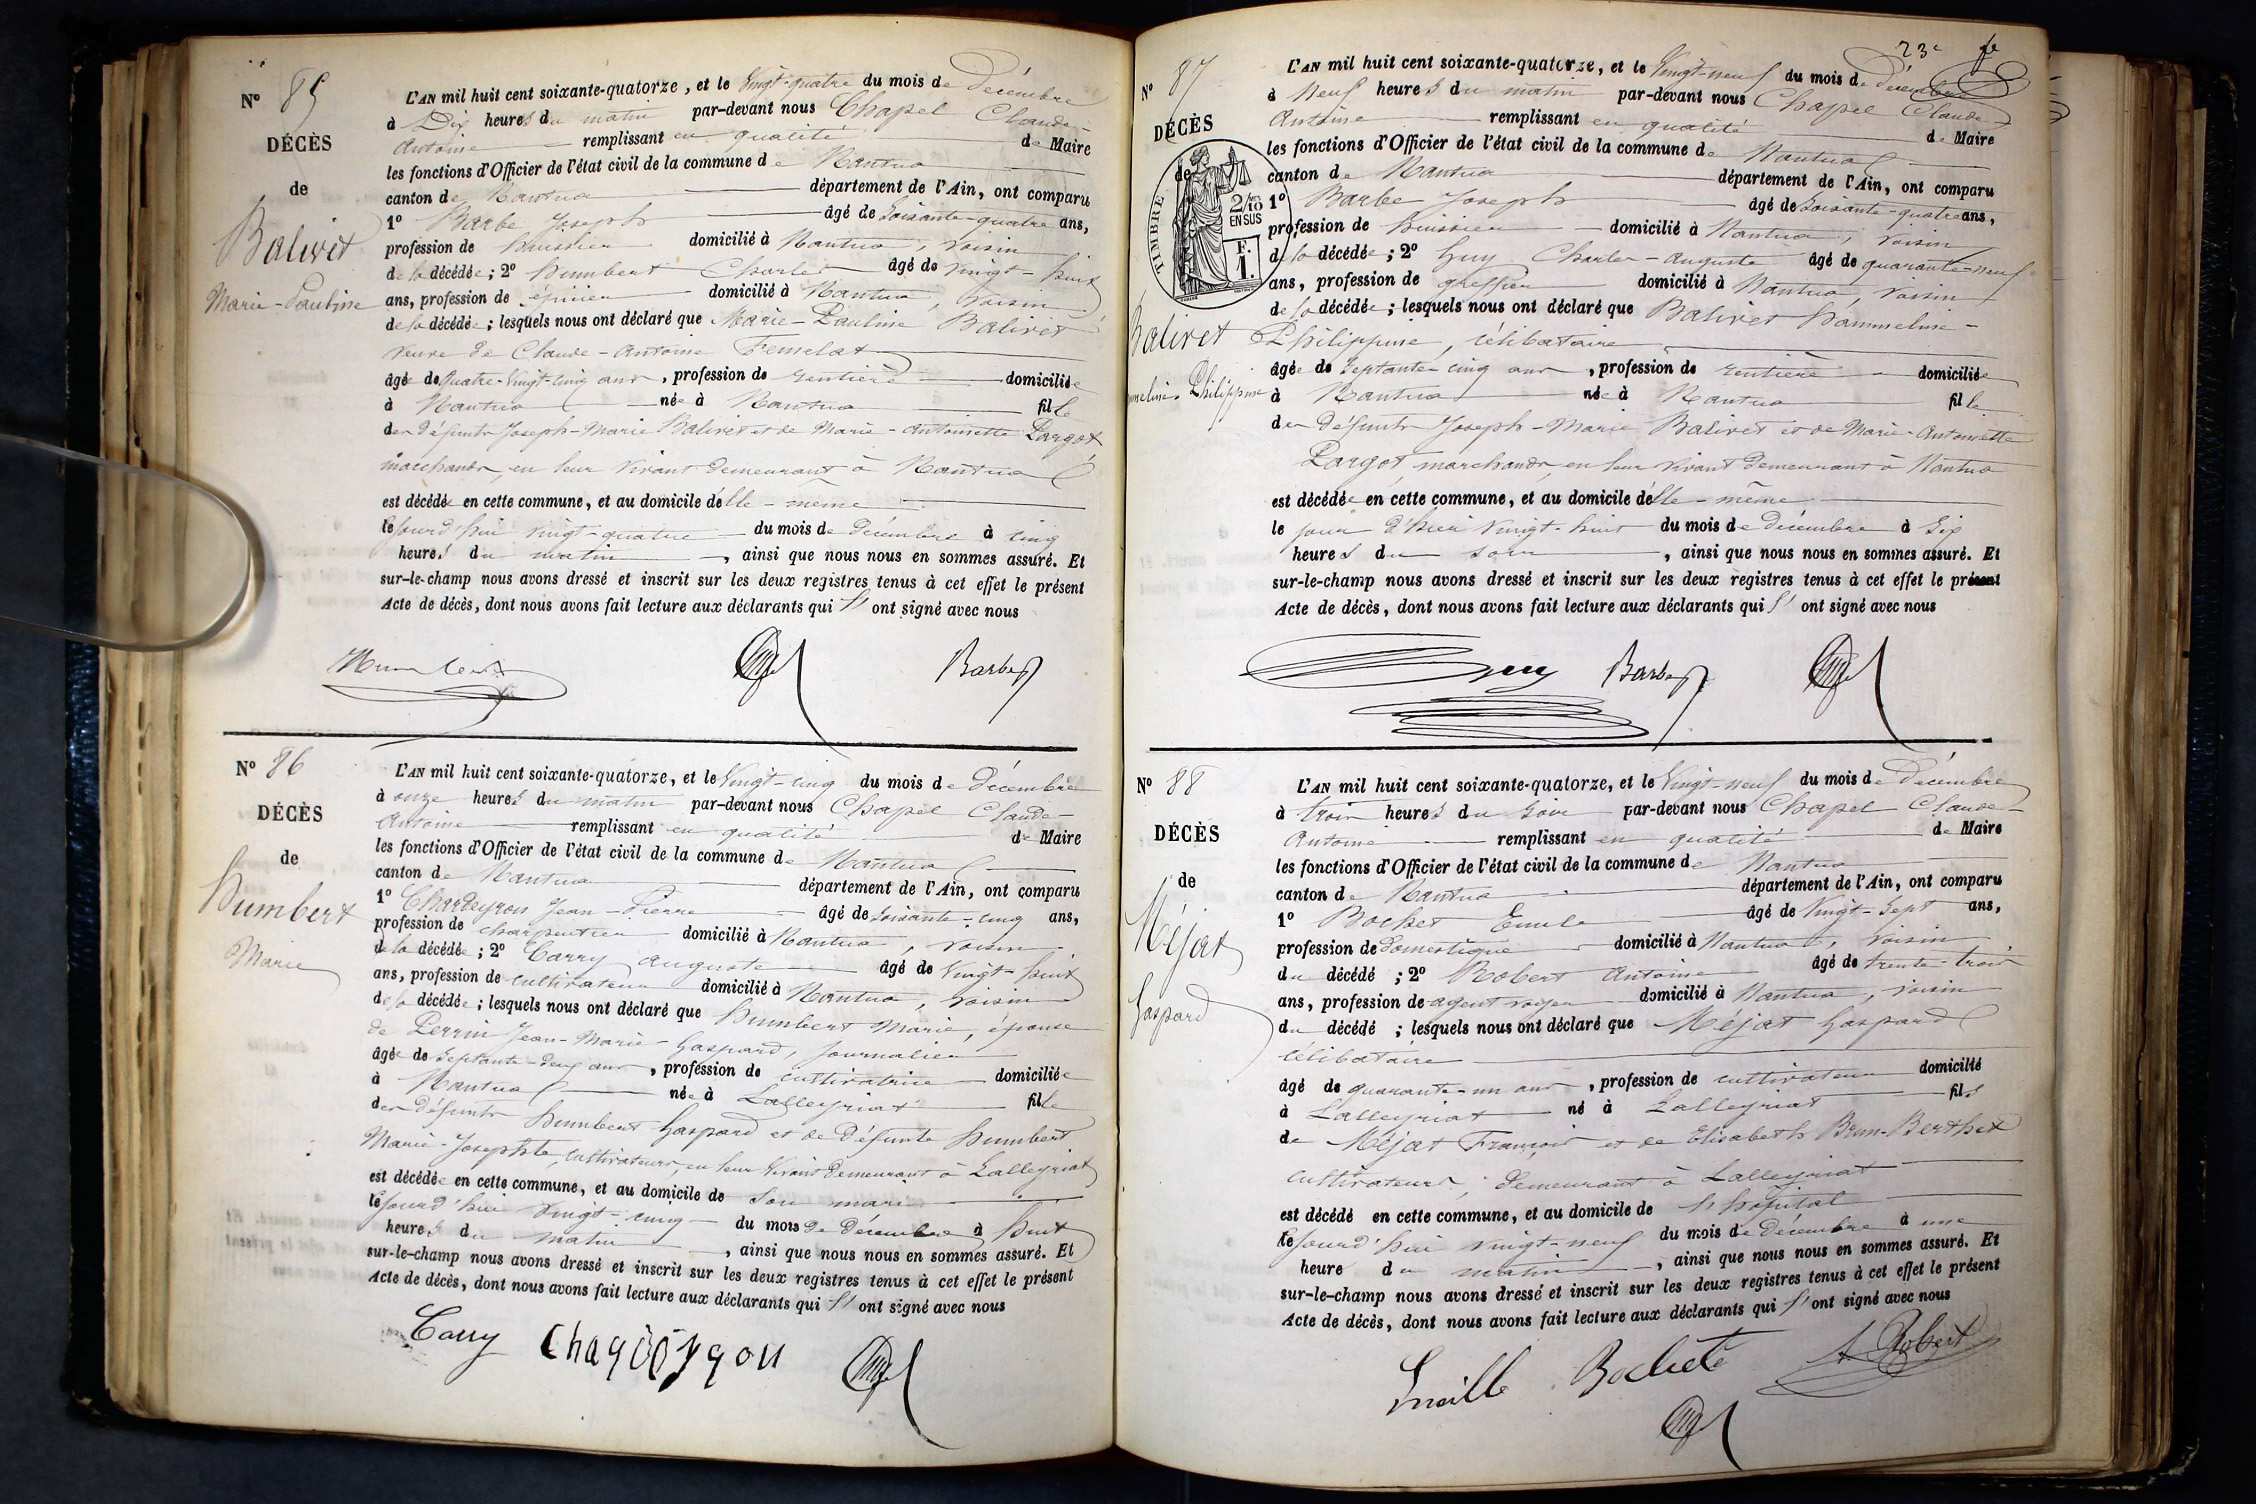 Nº 85
DÉCÈS
de
Balivet
Marie-Pauline
L'AN mil huit cent soixante-quatorze, et le Vingt-quatre du mois de Décembre
à Dix heures du matin par-devant nous Chapel Claude-
Antoine remplissant en qualité de Maire
les fonctions d'Officier de l'état civil de la commune de Nantua
canton de Nantua département de l'Ain, ont comparu
1º Barbe Joseph âgé de Soixante-quatre ans,
profession de huissier domicilié à Nantua, voisin
de la décédée; 2º humbert Charles âgé de vingt-huit
ans, profession de épicier domicilié à Nantua, voisin
de la décédée; lesquels nous ont déclaré que Marie-Pauline Balivet
veuve de Claude-Antoine Femelat
âgée de quatre-vingt-cinq ans, profession de rentière domiciliée
à Nantua née à Nantua fille
des défunts Joseph-Marie Balivet et de Marie-Antoinette Pargot
marchands, en leur vivant demeurant à Nantua
est décédée en cette commune, et au domicile d'elle-même
lejourd'hui vingt-quatre du mois de décembre à cinq
heures du matin, ainsi que nous nous en sommes assuré. Et
sur-le-champ nous avons dressé et inscrit sur les deux registres tenus à cet effet le présent
Acte de décès, dont nous avons fait lecture aux déclarants qui l' ont signé avec nous
Humbert Barbe
Nº 86
DÉCÈS
de
Humbert
Marie
L'AN mil huit cent soixante-quatorze, et le Vingt-cinq du mois de Décembre
à onze heures du matin par-devant nous Chapel Claude-
Antoine remplissant en qualité de Maire
les fonctions d'Officier de l'état civil de la commune de Nantua
canton de Nantua département de l'Ain, ont comparu
1º Chardeyron Jean-Pierre âgé de Soixante-cinq ans,
profession de charpentier domicilié à Nantua, voisin
de la décédée; 2º Carry auguste âgé de vingt-huit
ans, profession de cultivateur domicilié à Nantua, voisin
de la décédée; lesquels nous ont déclaré que humbert Marie, épouse
de Perrin Jean-Marie-Gaspard, journalier
âgée de Septante-deux ans, profession de cultivatrice domiciliée
à Nantua née à Lalleyriat fille
des défunts humbert Gaspard et de défunte humbert
Marie-Josephte, cultivateurs, en leur vivant demeurant à Lalleyriat
est décédée en cette commune, et au domicile de son mari
lejourd'hui vingt-cinq du mois de Décembre à huit
heures du matin, ainsi que nous nous en sommes assuré. Et
sur-le-champ nous avons dressé et inscrit sur les deux registres tenus à cet effet le présent
Acte de décès, dont nous avons fait lecture aux déclarants qui l' ont signé avec nous
Carry
23e
Nº 87
DÉCÈS
de
TIMBRE
2/10 EN SUS
F. 1.
Balivet
Philippine
L'AN mil huit cent soixante-quatorze, et le Vingt-neuf du mois de décembre
à Neuf heures du matin par-devant nous Chapel Claude-
Antoine remplissant en qualité de Maire
les fonctions d'Officier de l'état civil de la commune de Nantua
canton de Nantua département de l'Ain, ont comparu
1º Barbe Joseph âgé de Soixante-quatre ans,
profession de huissier domicilié à Nantua, voisin
de la décédée; 2º Guy Charles-Auguste âgé de quarante-neuf
ans, profession de greffier domicilié à Nantua, voisin
de la décédée; lesquels nous ont déclaré que Balivet hammeline-
Philippine, célibataire
âgée de Septante-cinq ans, profession de rentière domiciliée
à Nantua née à Nantua fille
des défunts Joseph-Marie Balivet et de Marie-Antoinette
Pargot marchands, en leur vivant demeurant à Nantua
est décédée en cette commune, et au domicile d'elle-même
le jour d'hier vingt-huit du mois de décembre à Six
heures du soir, ainsi que nous nous en sommes assuré. Et
sur-le-champ nous avons dressé et inscrit sur les deux registres tenus à cet effet le présent
Acte de décès, dont nous avons fait lecture aux déclarants qui l' ont signé avec nous
Guy Barbe
Nº 88
DÉCÈS
de
Méjat
Gaspard
L'AN mil huit cent soixante-quatorze, et le Vingt-neuf du mois de Décembre
à trois heures du soir par-devant nous Chapel Claude-
Antoine remplissant en qualité de Maire
les fonctions d'Officier de l'état civil de la commune de Nantua
canton de Nantua département de l'Ain, ont comparu
1º Bochet Emile âgé de Vingt-Sept ans,
profession de Domestique domicilié à Nantua, voisin
du décédé; 2º Robert Antoine âgé de trente-trois
ans, profession de agent voyer domicilié à Nantua, voisin
du décédé; lesquels nous ont déclaré que Méjat Gaspard
célibataire
âgé de quarante-un ans, profession de cultivateur domicilié
à Lalleyriat né à Lalleyriat fils
de Méjat François et de Elisabeth Brun-Berthet
cultivateurs, demeurant à Lalleyriat
est décédé en cette commune, et au domicile de l'hôpital
lejourd'hui vingt-neuf du mois de Décembre à une
heure du matin, ainsi que nous nous en sommes assuré. Et
sur-le-champ nous avons dressé et inscrit sur les deux registres tenus à cet effet le présent
Acte de décès, dont nous avons fait lecture aux déclarants qui l' ont signé avec nous
A. Robert